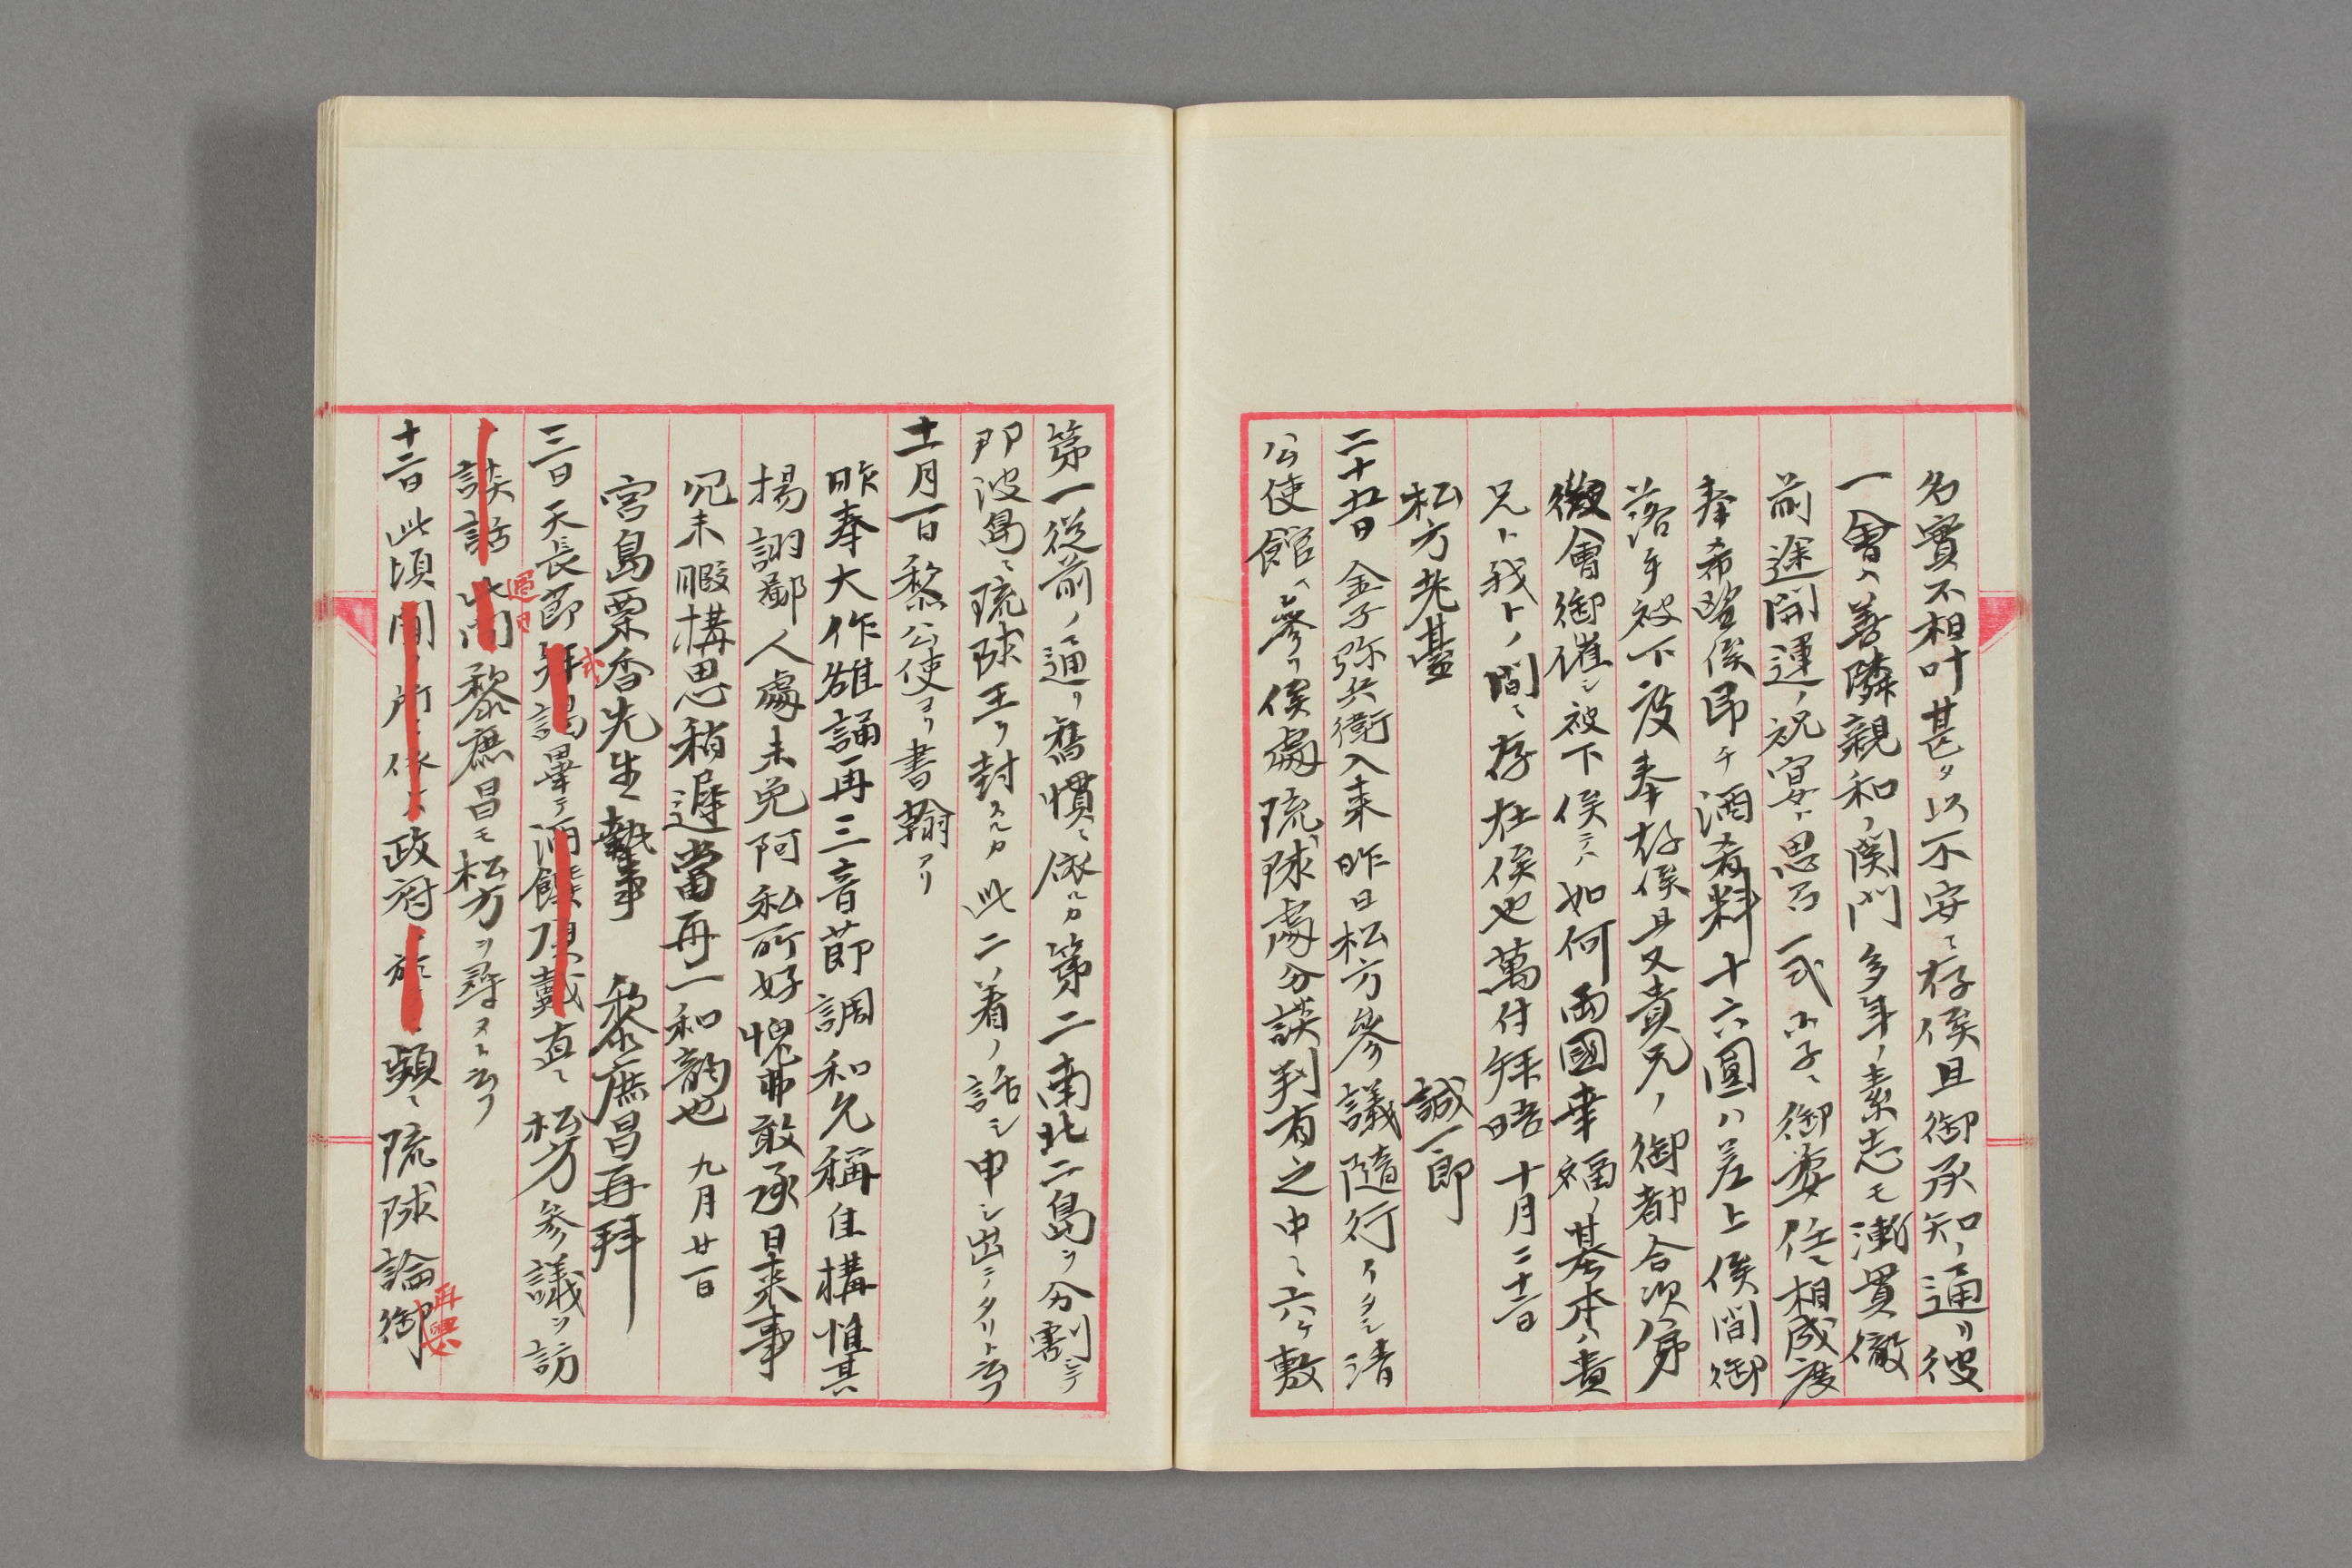 名實不相叶甚タ以不安ニ存候且御承知ノ通リ彼
一會ハ善隣親和ノ関門多年ノ素志モ漸貫徹
前途開運ノ祝宴ト思召一式小子ニ御委任ニ相成度
奉希望候即チ酒肴料十六圓ハ差上候間御
落手被下度奉存候且又貴兄ノ御都合次第
徴會御催シ被下候ニハ如何両國幸福ノ基本ハ貴
兄ト我トノ間ニ存在候也萬付拜晤 十月二十二日
松方老臺 誠一郎
二十五日 金子弥兵衛入来昨日松方參議隨行イタシ清
公使館ニ參リ候處琉球處分談判有之中々六ヶ敷
第一從前ノ通リ舊慣ニ倣ルカ第二南北二島ヲ分割シテ
那波島ニ琉球王ヲ封スルカ此二ノ着ノ話シ申シ出シタリト云フ
十一月一日 黎公使ヨリ書翰アリ
昨奉大作雒誦再三音節調和允稱佳構惟其
揚詡鄙人處未免阿私所好愧弗敢承日来事
冗未暇構思稍遲當再一和韵也 九月廿一日
宮島栗香先生執事 黎庶昌再拜
三日 天長節拜謁畢テ酒饌頂戴直ニ松方參議ヲ訪
談話此間黎庶昌モ松方ヲ尋ヌト云フ
十二日 此頃聞ク所ニ依レハ政府ニ於テ頻ニ琉球論御
再興